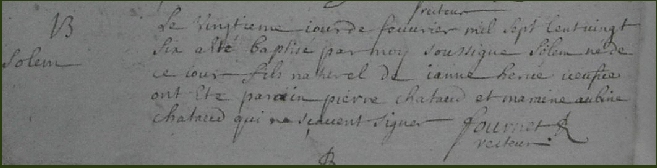 recteur
B Le vingtieme iour de feuvrier mil sept cent vingt
Solem six a eté baptise par moy soussigné Solem né de
ce iour fils naturel de ianne herue
ont ete parain pierre chataud et maraine aubine
chataud qui ne scauent signer fournet R
recteur
B